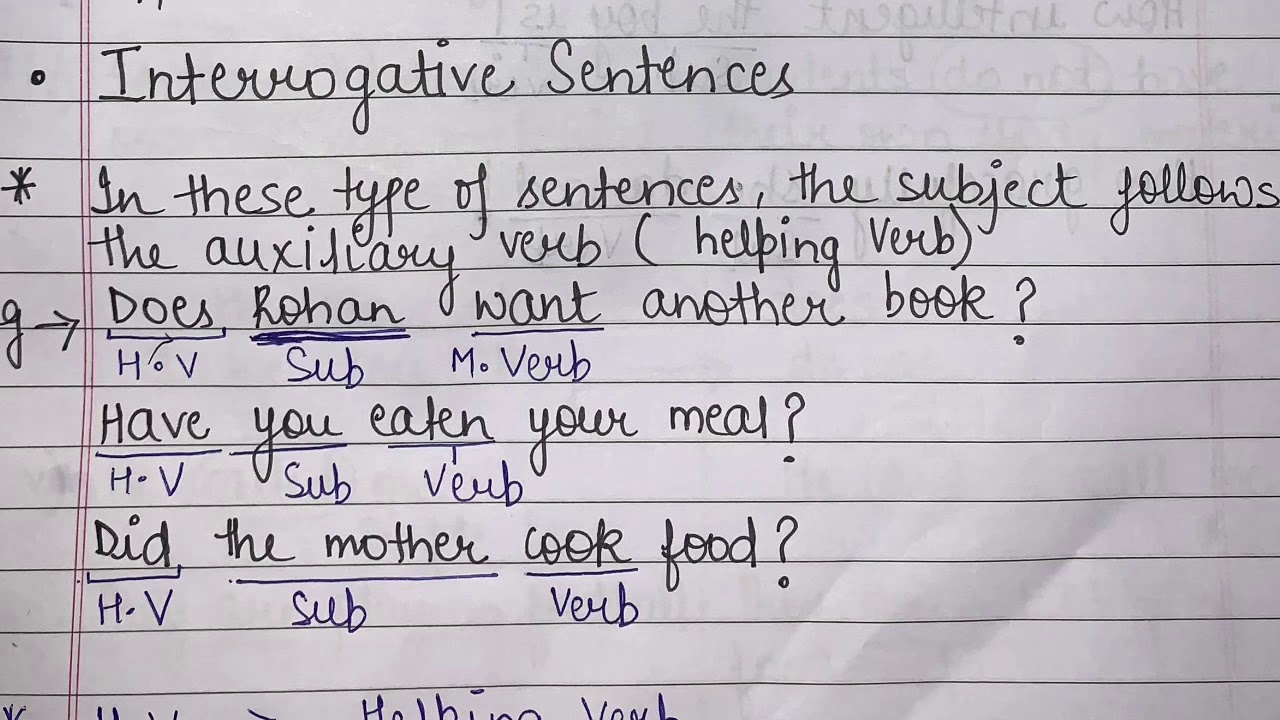 • Interrogative Sentences
* In these type of sentences, the subject follows
the auxiliary verb ( helping Verb)
g → Does Rohan want another book ?
H.V Sub M. Verb
Have you eaten your meal?
H.V Sub Verb
Did the mother cook food?
H.V Sub Verb
* H.V → Helping Verb